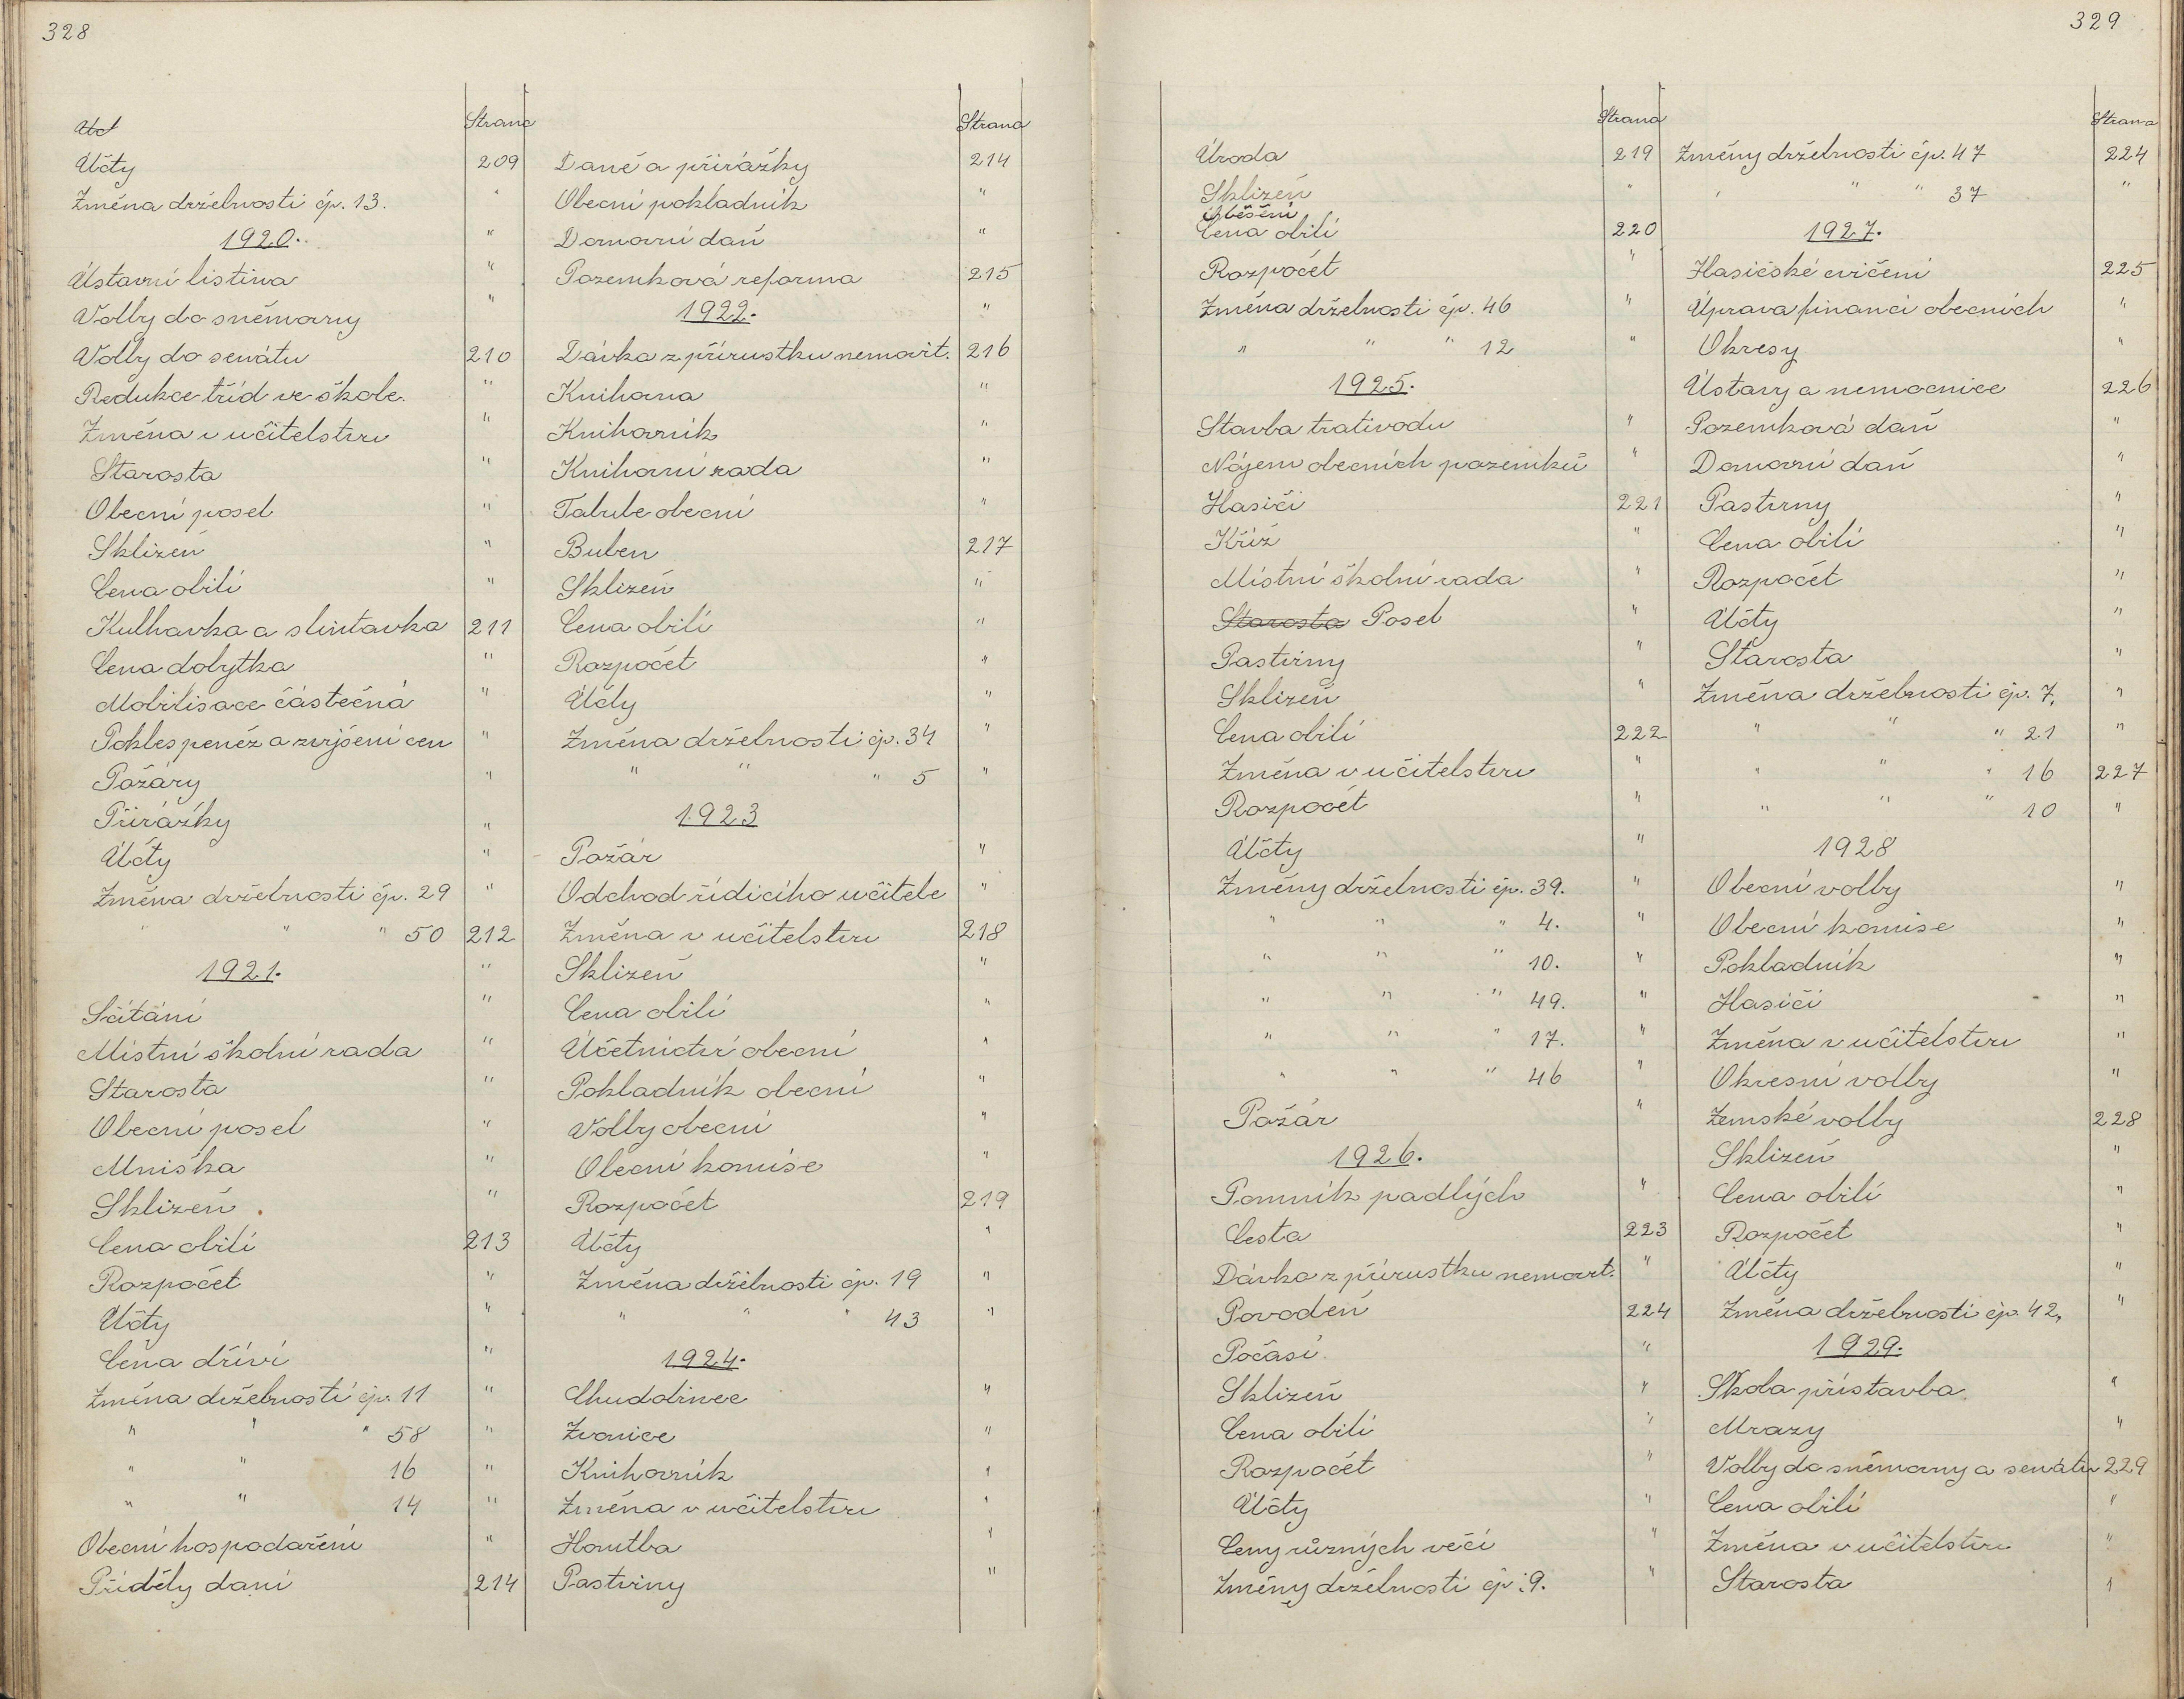 328
Strana
Účty 209
Změna držebnosti čp. 13. "
1920. "
Ústavní listina "
Volby do sněmovny "
Volby do senátu 210
Redukce tříd ve škole. "
Změna v učitelstvu "
Starosta "
Obecní posel "
Sklizeň "
Cena obilí "
Kulhavka a slintavka 211
Cena dobytka "
Mobilisace částečná "
Pokles peněz a zvýšení cen "
Požáry "
Přirážky "
Účty "
Změna držebnosti čp. 29 "
" " " 50 212
1921. "
Sčítání "
Místní školní rada "
Starosta "
Obecní posel "
Mniška "
Sklizeň "
Cena obilí 213
Rozpočet "
Účty "
Cena dříví "
Změna držebnosti čp. 11 "
" " " 58 "
" " 16 "
" " 14 "
Obecní hospodaření "
Příděly daní 214
Strana
Daně a přirážky 214
Obecní pokladník "
Domovní daň "
Pozemková reforma 215
1922. "
Dávka z přírustku nemovit. 216
Knihovna "
Knihovník "
Knihovní rada "
Tabule obecní "
Buben 217
Sklizeň "
Cena obilí "
Rozpočet "
Účty "
Změna držebnosti čp. 34 "
" " " 5 "
1923
Požár "
Odchod řídícího učitele "
Změna v učitelstvu 218
Sklizeň "
Cena obilí "
Účetnictví obecní "
Pokladník obecní "
Volby obecní "
Obecní komise "
Rozpočet 219
Účty "
Změna držebnosti čp. 19 "
" " " 43 "
1924.
Chudobinec "
Zvonice "
Knihovník "
Změna v učitelstvu "
Honitba "
Pastviny "
329
Strana
Úroda 219
Sklizeň "
Oběšení
Cena obilí 220
Rozpočet "
Změna držebnosti čp. 46 "
" " " 12 "
1925.
Stavba trativodu "
Nájem obecních pozemků "
Hasiči 221
Kříž "
Místní školní rada "
Starosta Posel "
Pastviny "
Sklizeň "
Cena obilí 222
Změna v učitelstvu "
Rozpočet "
Účty "
Změny držebnosti čp. 39. "
" " " 4. "
" " " 10. "
" " " 49. "
" " " 17. "
" " " 46 "
Požár "
1926.
Pomník padlých "
Cesta 223
Dávka z přírustku nemovit. "
Povodeň 224
Počasí "
Sklizeň "
Cena obilí "
Rozpočet "
Účty "
Ceny různých věcí "
Změny držebnosti čp. 9. "
Strana
Změny držebnosti čp. 47 224
" " " 37 "
1927.
Hasičské cvičení 225
Úprava financí obecních "
Okresy "
Ústavy a nemocnice 226
Pozemková daň "
Domovní daň "
Pastviny "
Cena obilí "
Rozpočet "
Účty "
Starosta "
Změna držebnosti čp. 7. "
" " " 21 "
" " " 16 227
" " " 10 "
1928
Obecní volby "
Obecní komise "
Pokladník "
Hasiči "
Změna v učitelstvu "
Okresní volby "
Zemské volby 228
Sklizeň "
Cena obilí "
Rozpočet "
Účty "
Změna držebnosti čp. 42. "
1929.
Škola přístavba "
Mrazy "
Volby do sněmovny a senátu 229
Cena obilí "
Změna v učitelstvu "
Starosta "